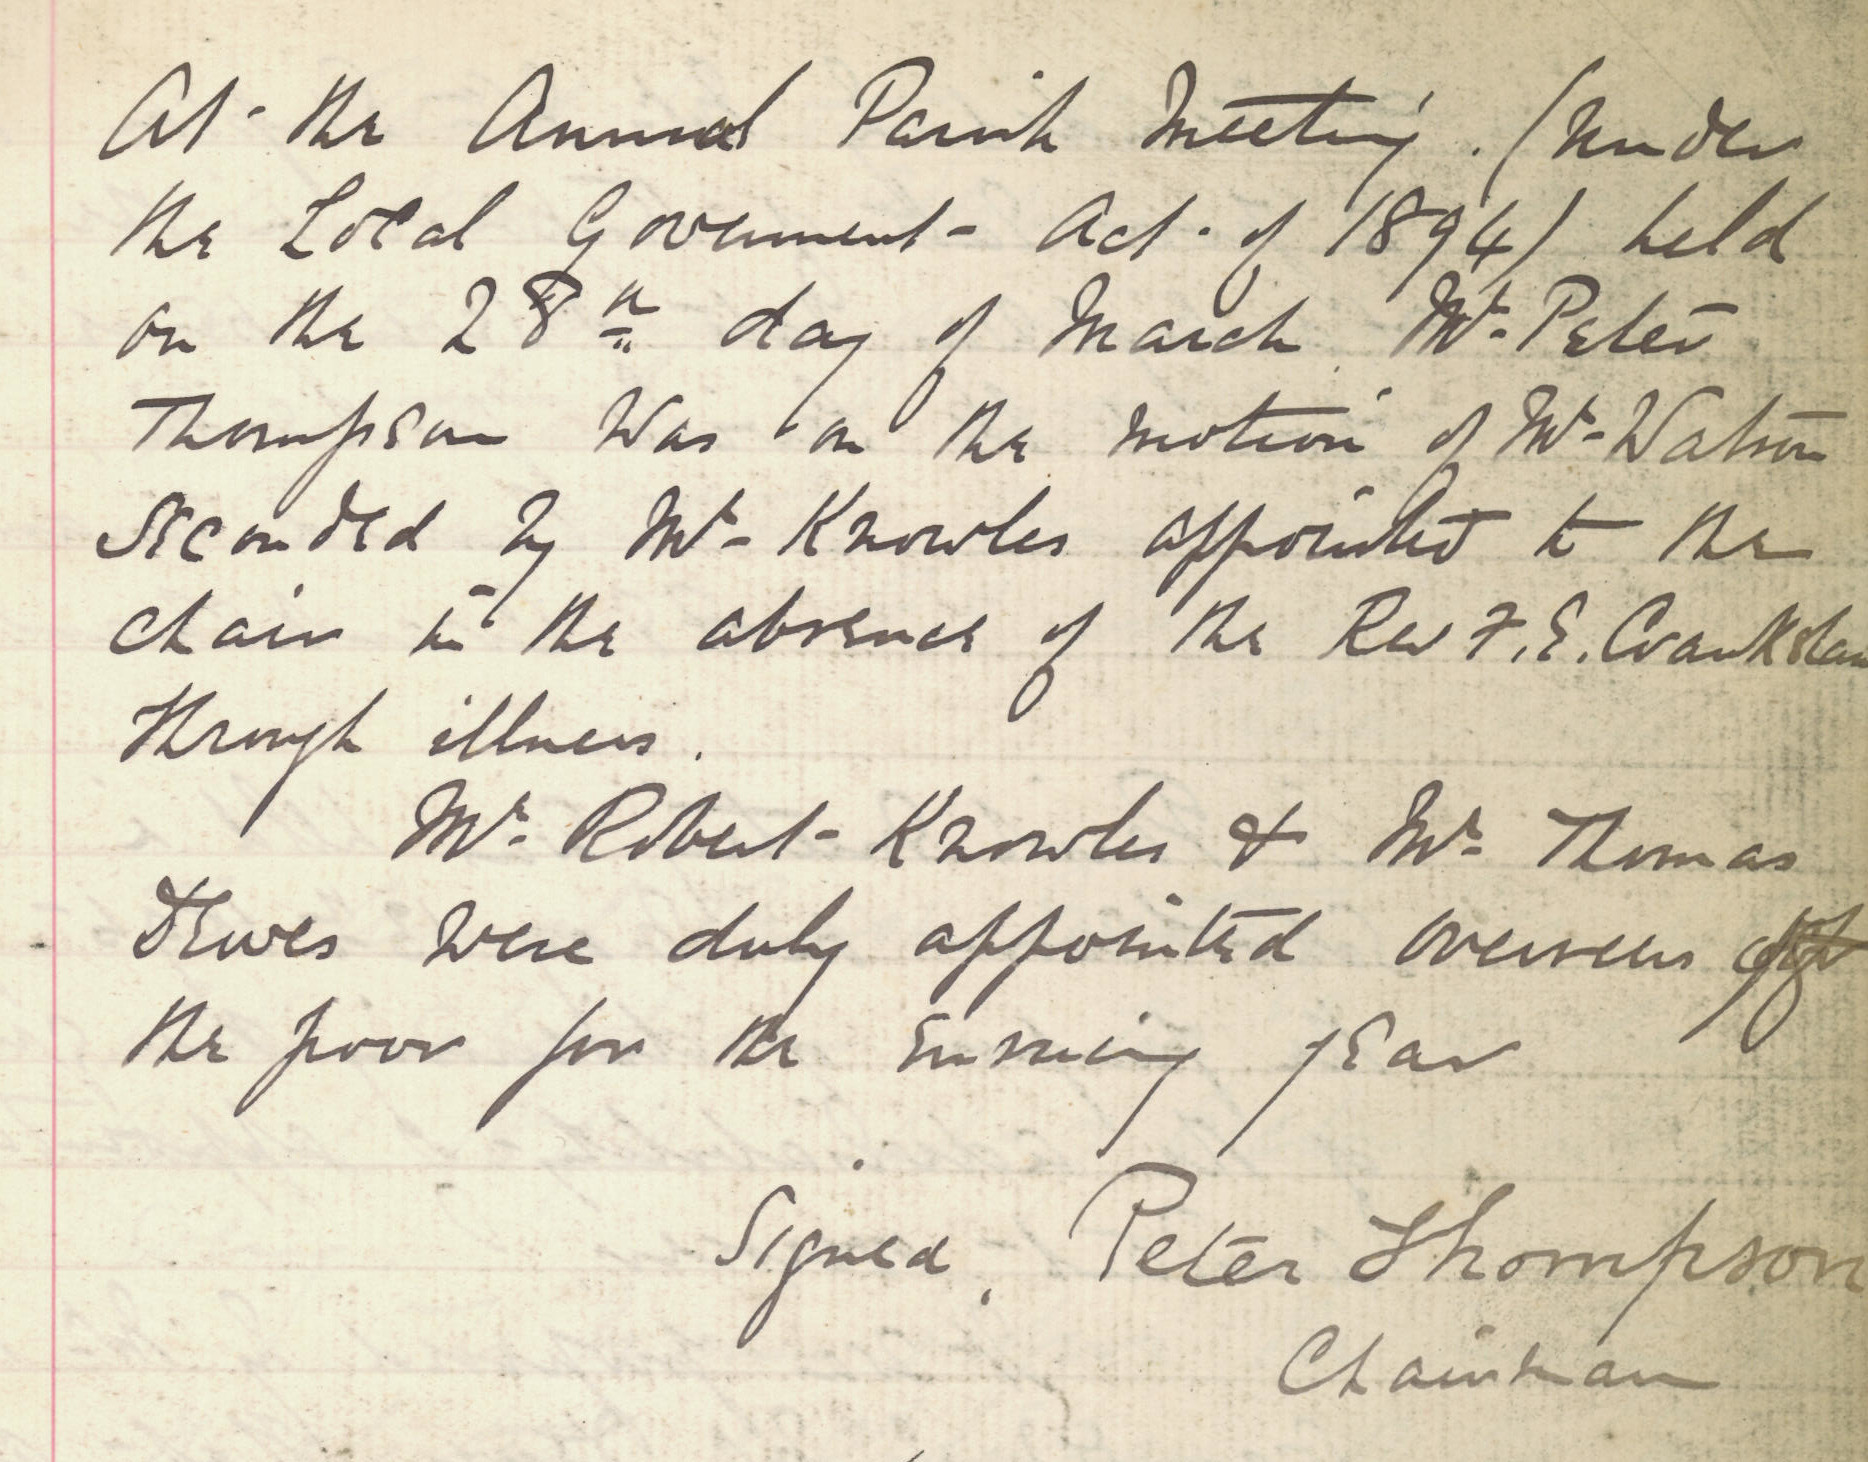 At the Annual Parish Meeting. (Under
the Local Government Act of 1894) held
on the 28th day of March Mr Peter
Thompson was on the motion of Mr Watson
seconded by Mr Knowles appointed to the
chair in the absence of the Rev F. E.
through illness.
Mr Robert Knowles & Mr Thomas
were duly appointed overseers of
the poor for the ensuing year
Signed, Peter Thompson
Chairman